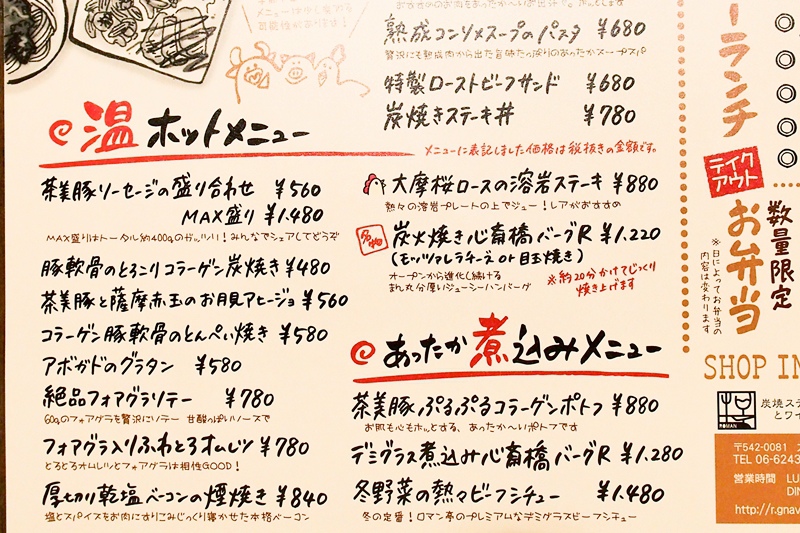 メニューは少し変わる
可能性があります!
熟成コンソメスープのパスタ ¥680
贅沢にも熟成肉から出た旨味たっぷりのあったかスープスパ
特製ローストビーフサンド ¥680
炭焼きステーキ丼 ¥780
メニューに表記しました価格は税抜きの金額です。
温ホットメニュー
茶美豚ソーセージの盛り合わせ ¥560
MAX盛り ¥1,480
MAX盛りはトータル約400gのガッツリ!みんなでシェアしてどうぞ
豚軟骨のとろこリコラーゲン炭焼き ¥480
茶美豚と薩摩赤玉のお月見アヒージョ ¥560
コラーゲン豚軟骨のとんぺい焼き ¥580
アボガドのグラタン ¥580
絶品フォアグラソテー ¥780
60gのフォアグラを贅沢にソテー 甘酸っぱいソースで
フォアグラ入りふわとろオムレツ ¥780
とろとろオムレツとフォアグラは相性GOOD!
厚切り乾塩ベーコンの煙焼き ¥840
塩とスパイスをお肉にすりこみじっくり寝かせた本格ベーコン
大摩桜ロースの溶岩ステーキ ¥880
熱々の溶岩プレートの上でジュー!レアがおすすめ
名物
炭火焼き心斎橋バーグR ¥1,220
(モッツァレラチーズ or 目玉焼き)
オープンから進化し続ける
まん丸分厚いジューシーハンバーグ
※約20分かけてじっくり
焼き上げます
あったか煮込みメニュー
茶美豚ぷるぷるコラーゲンポトフ ¥880
お肌も心もホッとする、あったか〜いポトフです
デミグラス煮込み心斎橋バーグR ¥1,280
冬野菜の熱々ビーフシチュー ¥1,480
冬の定番!ロマン亭のプレミアムなデミグラスビーフシチュー
ーランチ
テイク
アウト
お弁当
数量限定
※日によってお弁当の
内容は変わります
SHOP IN
ROMAN
炭焼ステ
とワイ
〒542-0081
TEL 06-6243
営業時間 LU
DIN
http://r.gnav